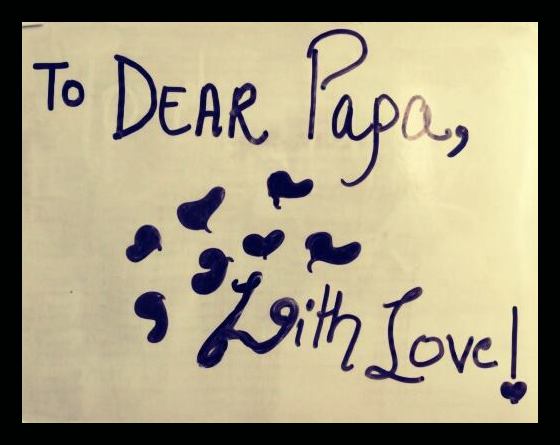 To DEAR Papa,
With Love!